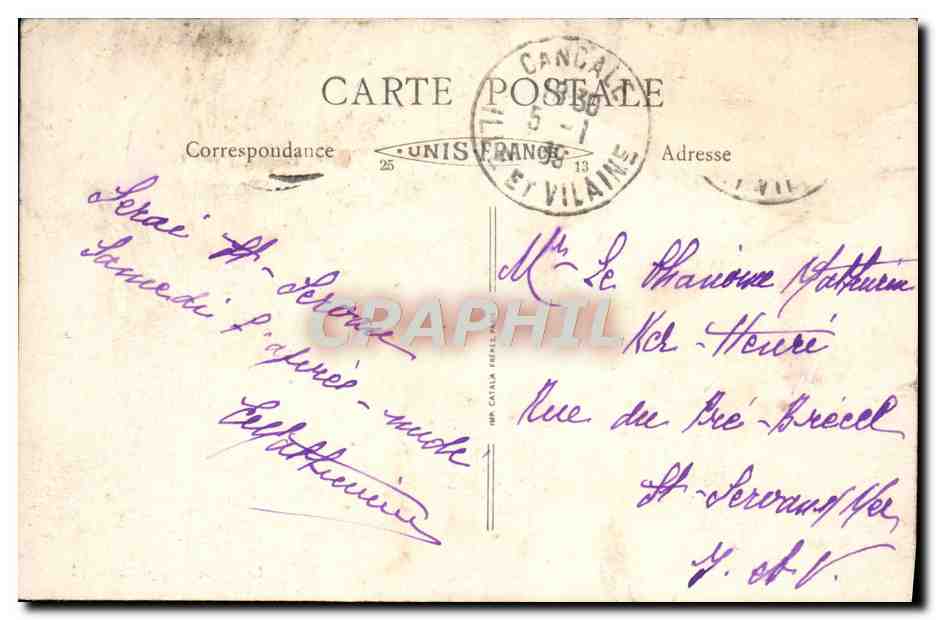 CARTE POSTALE
CANCALE
5 - 1
ILLE ET VILAINE
Correspondance
UNIS FRANCE
25
13
Adresse
Serai St-Servan
Samedi l'après-midi
Mathurin
IMP. CATALA FRÈRES, PARIS
CRAPHIL
Mr Le Chanoine Mathurin
Ker-Henri
Rue du Pré-Brécel
St-Servan s/Mer
I. et V.